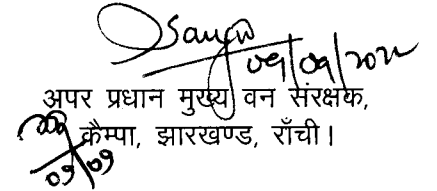 09/09/2022
अपर प्रधान मुख्य वन संरक्षक,
कैम्पा, झारखण्ड, राँची।
09/09